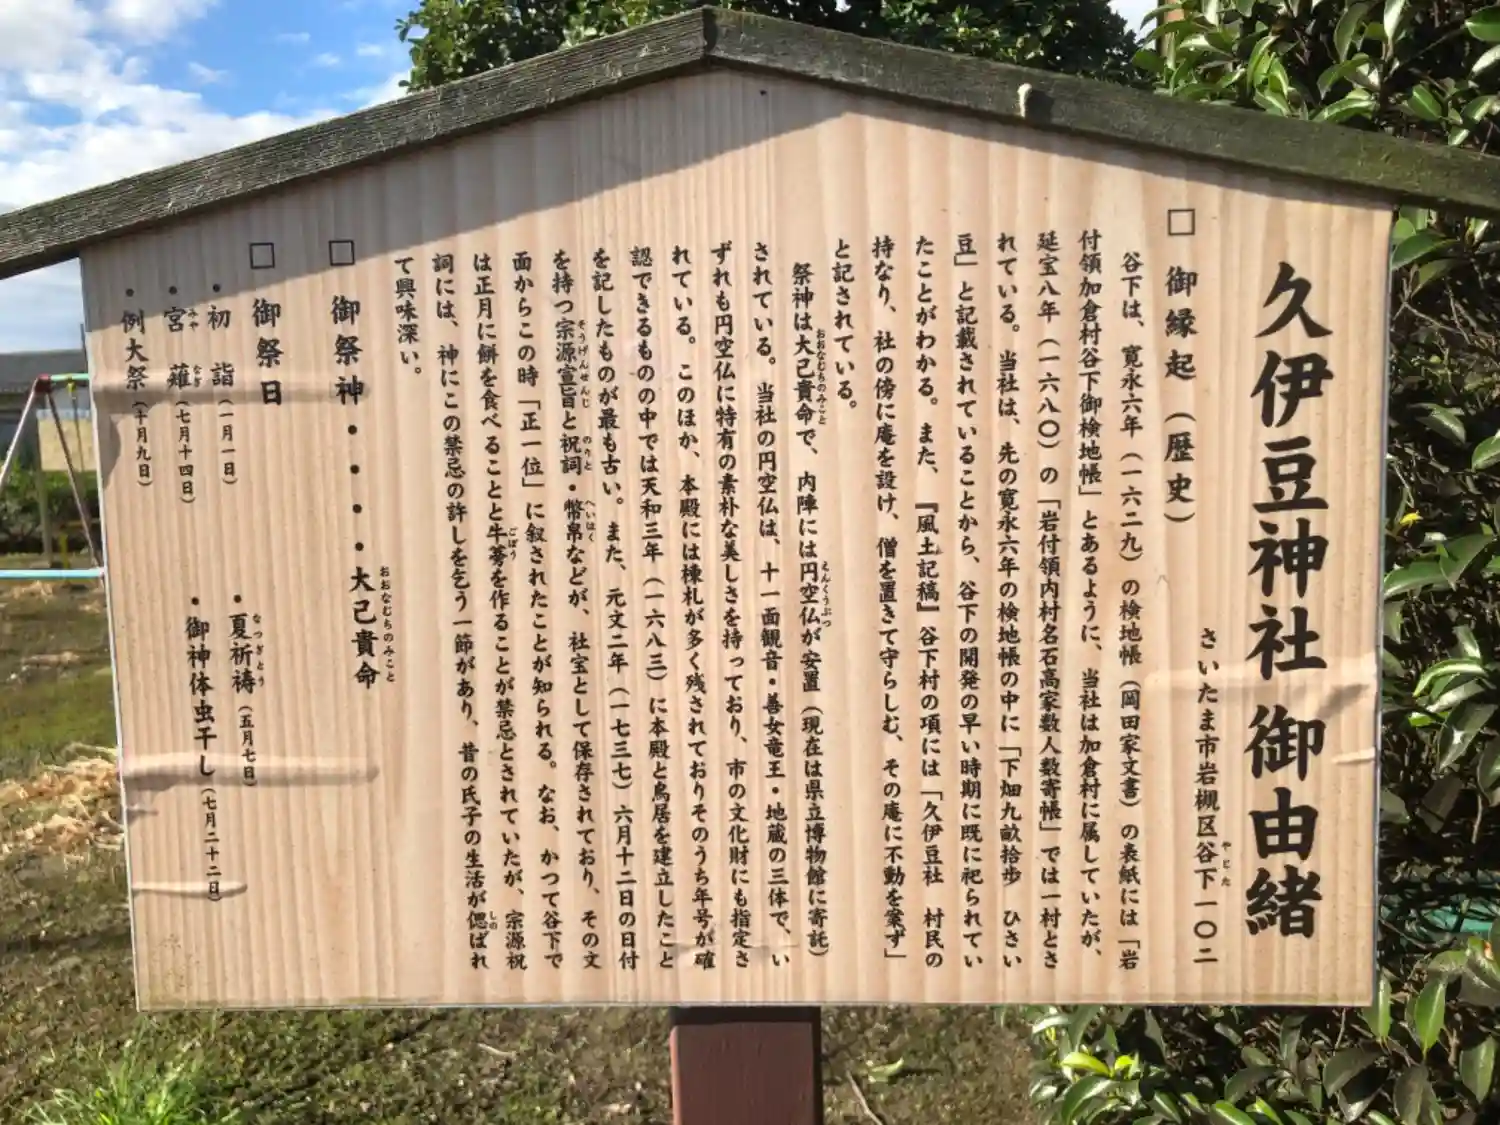 久伊豆神社 御由緒
さいたま市岩槻区谷下一〇二
やじた
□ 御縁起（歴史）
谷下は、寛永六年（一六二九）の検地帳（岡田家文書）の表紙には「岩
付領加倉村谷下御検地帳」とあるように、当社は加倉村に属していたが、
延宝八年（一六八〇）の「岩付領内村名石高家数人数寄帳」では一村とさ
れている。当社は、先の寛永六年の検地帳の中に「下畑九畝拾歩 ひさい
豆」と記載されていることから、谷下の開発の早い時期に既に祀られてい
たことがわかる。また、『風土記稿』谷下村の項には「久伊豆社 村民の
持なり、社の傍に庵を設け、僧を置きて守らしむ、その庵に不動を案ず」
と記されている。
祭神は大己貴命で、内陣には円空仏が安置（現在は県立博物館に寄託）
おおなむちのみこと
えんくうぶつ
されている。当社の円空仏は、十一面観音・善女竜王・地蔵の三体で、い
ずれも円空仏に特有の素朴な美しさを持っており、市の文化財にも指定さ
れている。このほか、本殿には棟札が多く残されておりそのうち年号が確
認できるものの中では天和三年（一六八三）に本殿と鳥居を建立したこと
を記したものが最も古い。また、元文二年（一七三七）六月十二日の日付
を持つ宗源宣旨と祝詞・幣帛などが、社宝として保存されており、その文
そうげんせんじ
のりと
へいはく
面からこの時「正一位」に叙されたことが知られる。なお、かつて谷下で
は正月に餅を食べることと牛蒡を作ることが禁忌とされていたが、宗源祝
ごぼう
詞には、神にこの禁忌の許しを乞う一節があり、昔の氏子の生活が偲ばれ
しの
て興味深い。
□ 御祭神・・・・大己貴命
おおなむちのみこと
□ 御祭日
・初詣（一月一日）
・夏祈祷（五月七日）
なつぎとう
・宮薙（七月十四日）
みやなぎ
・御神体虫干し（七月二十二日）
・例大祭（十月九日）